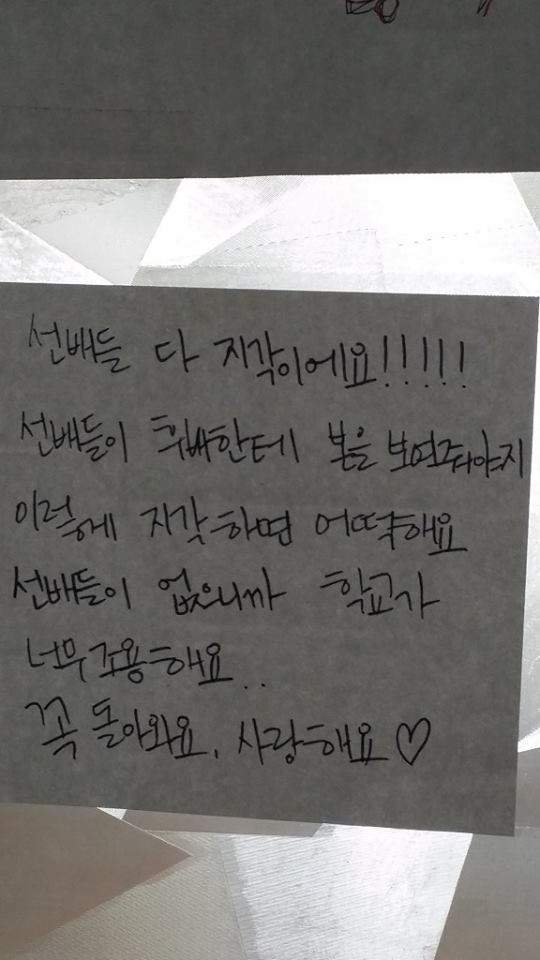 선배들 다 지각이에요!!!!!
선배들이 후배한테 본을 보여줘야지
이렇게 지각하면 어떡해요
선배들이 없으니까 학교가
너무 조용해요..
꼭 돌아와요. 사랑해요♡